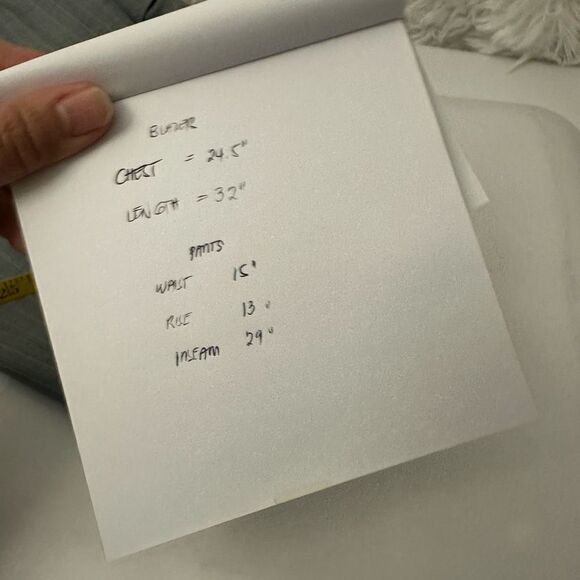 BLAZER
CHEST = 24.5"
LENGTH = 32"
PANTS
WAIST 15"
RISE 13"
INSEAM 29"